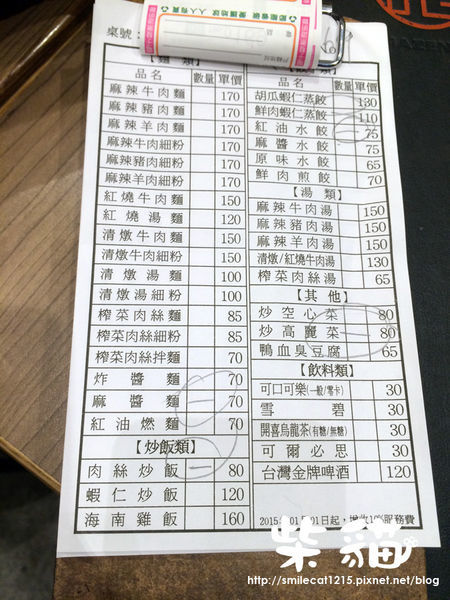 桌號：
【麵類】
品名 數量 單價
麻辣牛肉麵 170
麻辣豬肉麵 170
麻辣羊肉麵 170
麻辣牛肉細粉 170
麻辣豬肉細粉 170
麻辣羊肉細粉 170
紅燒牛肉麵 150
紅燒湯麵 120
清燉牛肉麵 150
清燉牛肉細粉 150
清燉湯麵 100
清燉湯細粉 100
榨菜肉絲麵 85
榨菜肉絲細粉 85
榨菜肉絲拌麵 70
炸醬麵 70
麻醬麵 70
紅油燃麵 70
【炒飯類】
肉絲炒飯 一 80
蝦仁炒飯 120
海南雞飯 160
品名 數量 單價
胡瓜蝦仁蒸餃 130
鮮肉蝦仁蒸餃 110
紅油水餃 75
麻醬水餃 75
原味水餃 65
鮮肉煎餃 70
【湯類】
麻辣牛肉湯 150
麻辣豬肉湯 150
麻辣羊肉湯 150
清燉/紅燒牛肉湯 130
榨菜肉絲湯 65
【其他】
炒空心菜 80
炒高麗菜 80
鴨血臭豆腐 65
【飲料類】
可口可樂(一般/零卡) 30
雪碧 30
開喜烏龍茶(有糖/無糖) 30
可爾必思 30
台灣金牌啤酒 120
2015年01月01日起，增收10%服務費
柴貓
http://smilecat1215.pixnet.net/blog